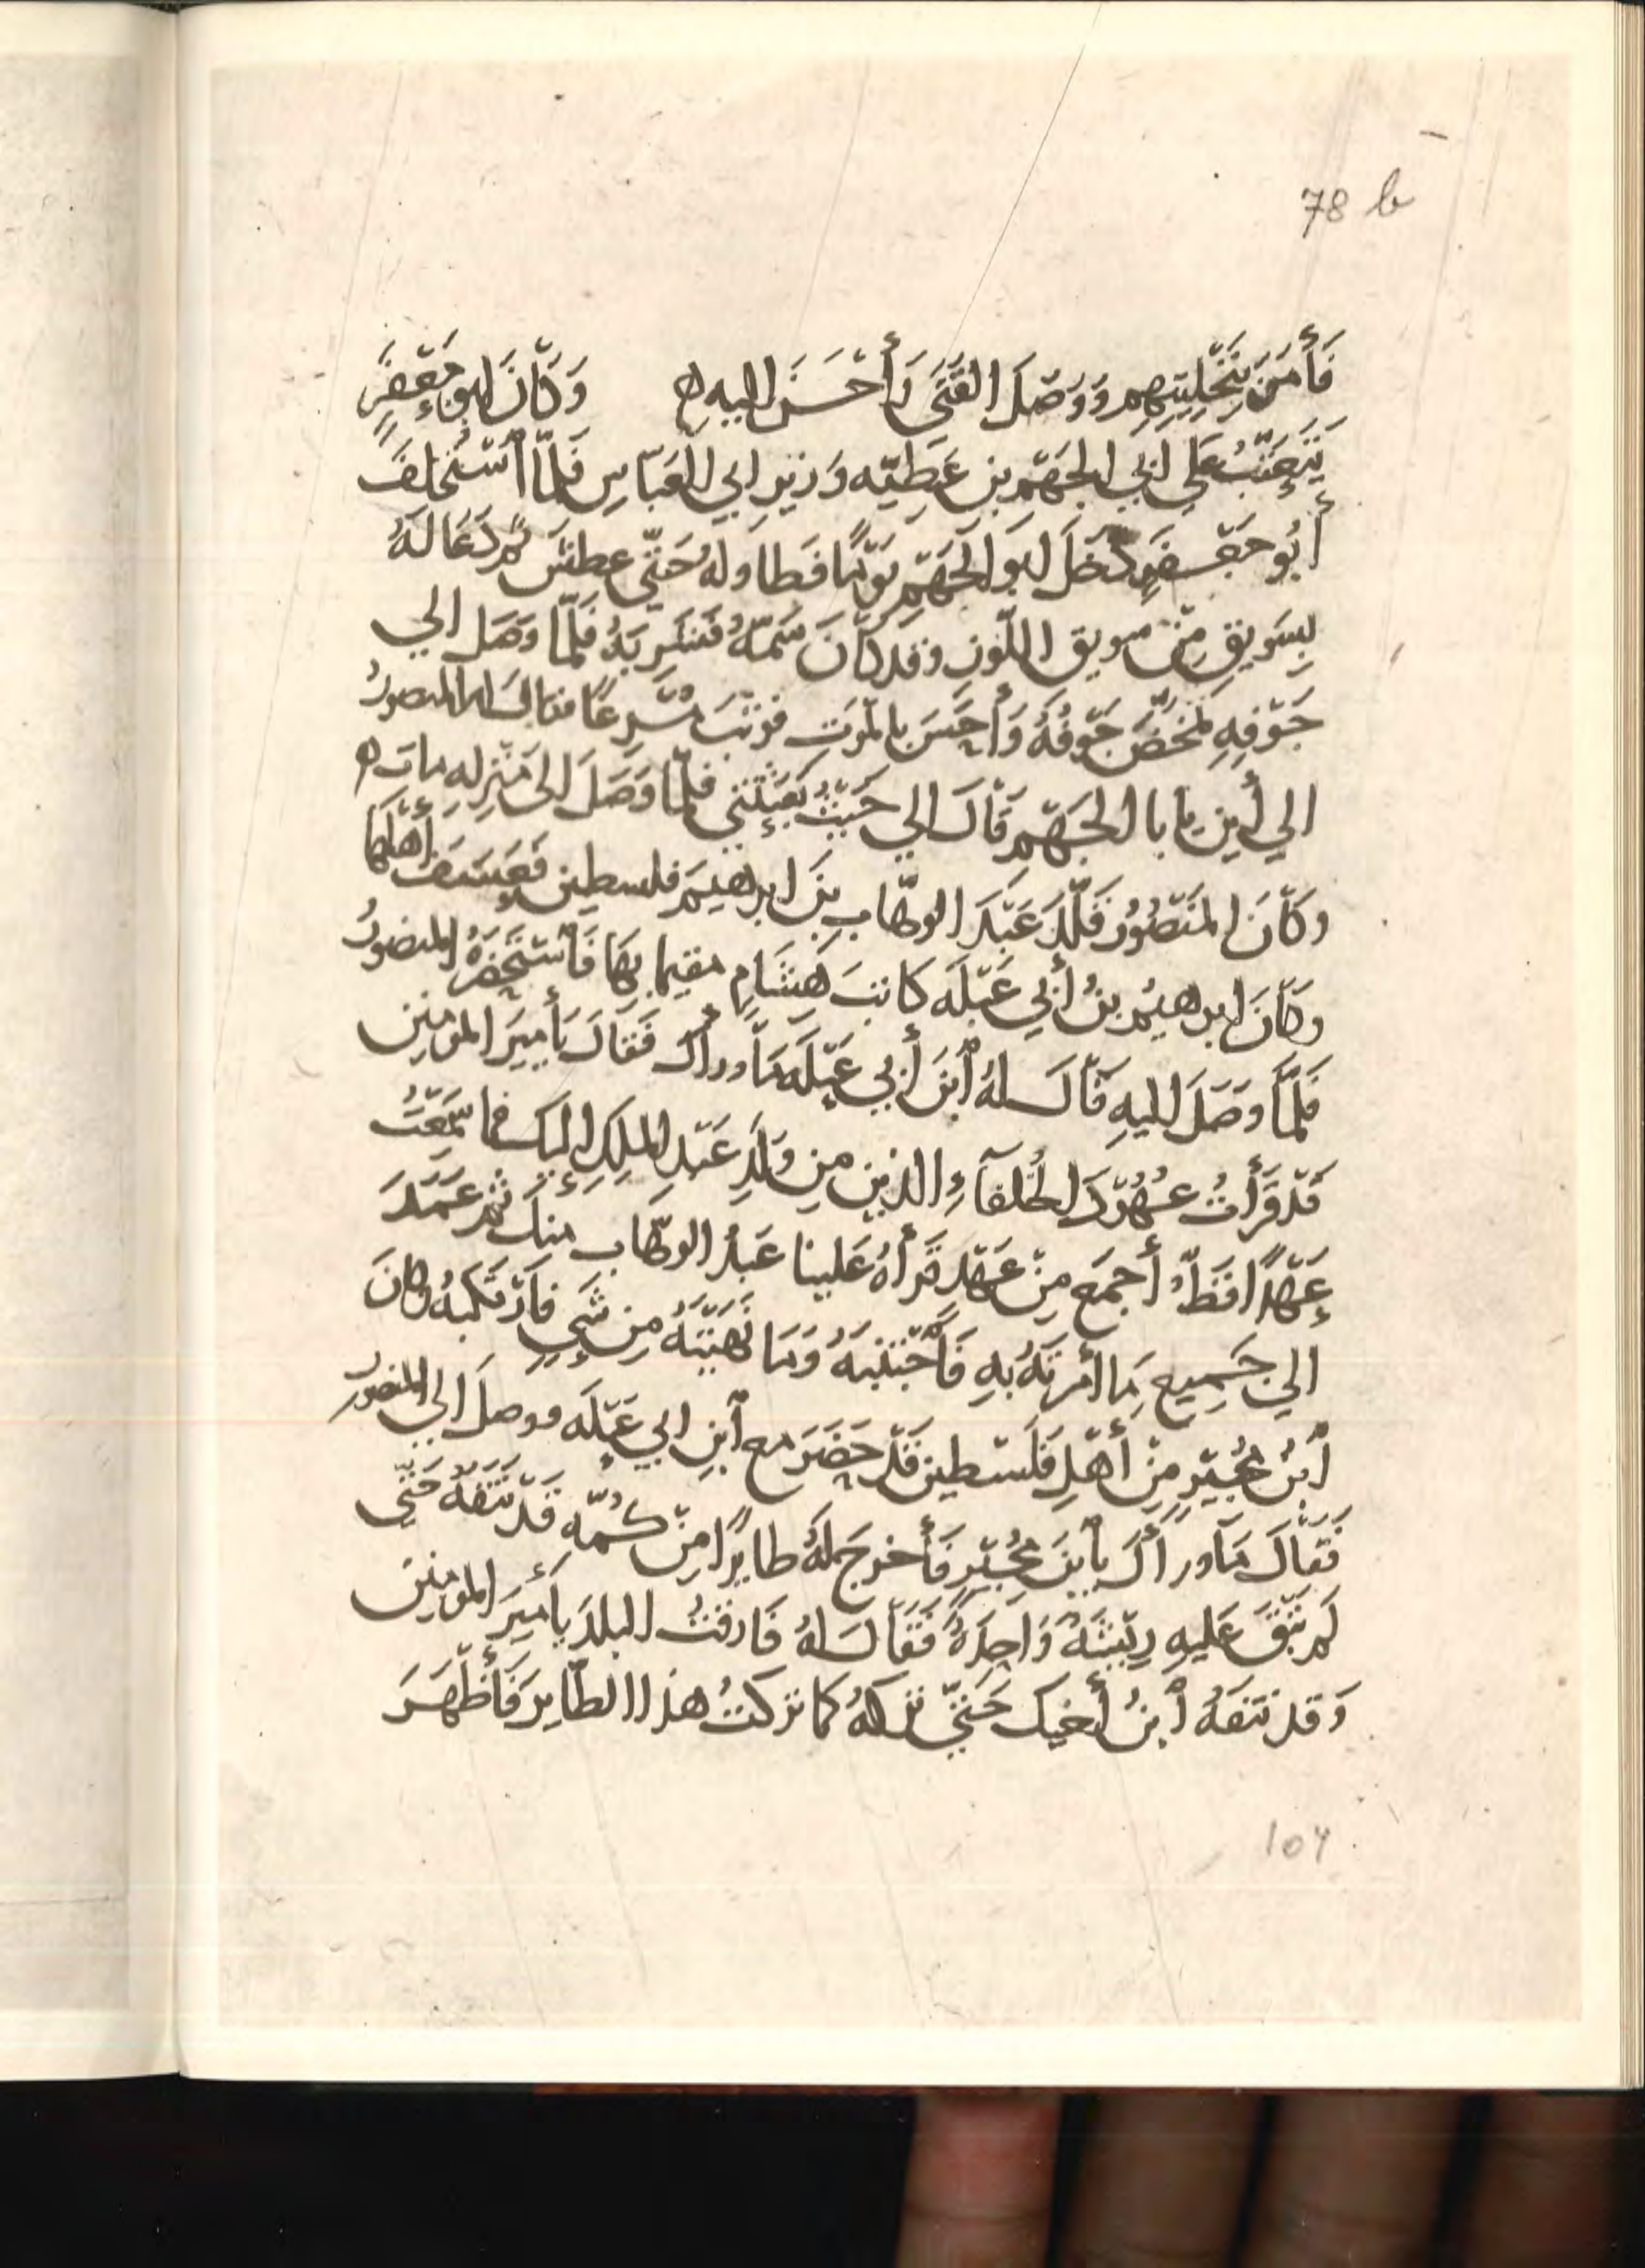 78 b
فَأَمَرَ بِتَخْلِيَتِهِم وَوَصَلَ الفَتَى وَأَحْسَنَ اليه ه وَكَانَ ابو جَعْفَرٍ
يَتَعَتَّبُ عَلى ابي الجَهْمِ بنِ عَطِيّه وَزيرِ ابي العَبّاسِ فَلَمّا ٱسْتُخْلِفَ
أَبُو جَعْفَرٍ دَخَلَ ابو الجَهْمِ يَوْمًا فطاوله حَتّى عطش ثم دَعَا لَهُ
بِسَوِيقٍ مِنْ سويق اللّوز وقد كَانَ سَمَّهُ فَشَرِبَهُ فَلَمّا وَصَل الي
جَوْفِهِ تمَخَّضَ جَوْفُهُ وَأَحَسَّ بالمَوتِ فوَثَبَ مُسْرِعًا فقال له المنصورُ
الي أين يا با الجَهْمِ قَالَ الي حَيْثُ بَعَثْتَنِي فلمّا وَصَلَ الى مَنْزِلِهِ مات ه
وكَانَ المَنْصُورُ قَلَّدَ عَبْدَ الوهّابِ بنَ ابرهيمَ فلسطين فَعَسَفَ أَهْلَهَا
وكَانَ ابرهيمُ بنُ أَبي عَبْلَه كاتبَ هِشَامٍ مقيما بِهَا فَٱسْتَحْضَرَهُ المنصورُ
فَلَمَّا وَصَلَ اليهِ قَالَ لهُ ٱبنَ أَبي عَبْلَه مَا وراك فَقَالَ يَأميرَ المومنين
قَدْ قَرَأتُ عُهُودَ الخُلَفآءِ الذين من وَلَدِ عَبْدِ المَلِكِ اليك فما سَمِعْتُ
عَهْدًا قَطُّ أَجمَع مِنْ عَهْدٍ قَرَأَهُ عَلينا عَبْدُ الوهّاب منك ثمّ عَمَدَ
الي جَمِيعِ مَا أمرتَهُ بِهِ فَٱجْتَنَبَهُ وَمَا نَهَيْتَهُ مِن شَيٍ فَٱرْتَكَبَهُ وكانَ
ٱبنُ مُجْبِرٍ مِنْ أَهْلِ فَلَسْطين قَدْ حَضَرَ مع ٱبنِ ابي عَبْلَه ووصلَ الي المنصور
فَقَالَ مَا وراكَ يٱبنَ مُجْبِرٍ فَأَخرجَ لهُ طايرًا مِنْ كُمّه قَدْ نَتَفَهُ حَتّى
لَم تَبْقَ عَليهِ رِيْشَةٌ وَاحِدَةٌ فَقَالَ لهُ فَارقتُ البلدَ يأميرَ المومنين
وَقد نَتَفَهُ ٱبنُ أَخيك حَتّى تركهُ كما تركتُ هذا الطّايِرَ فَأَظْهَرَ
104